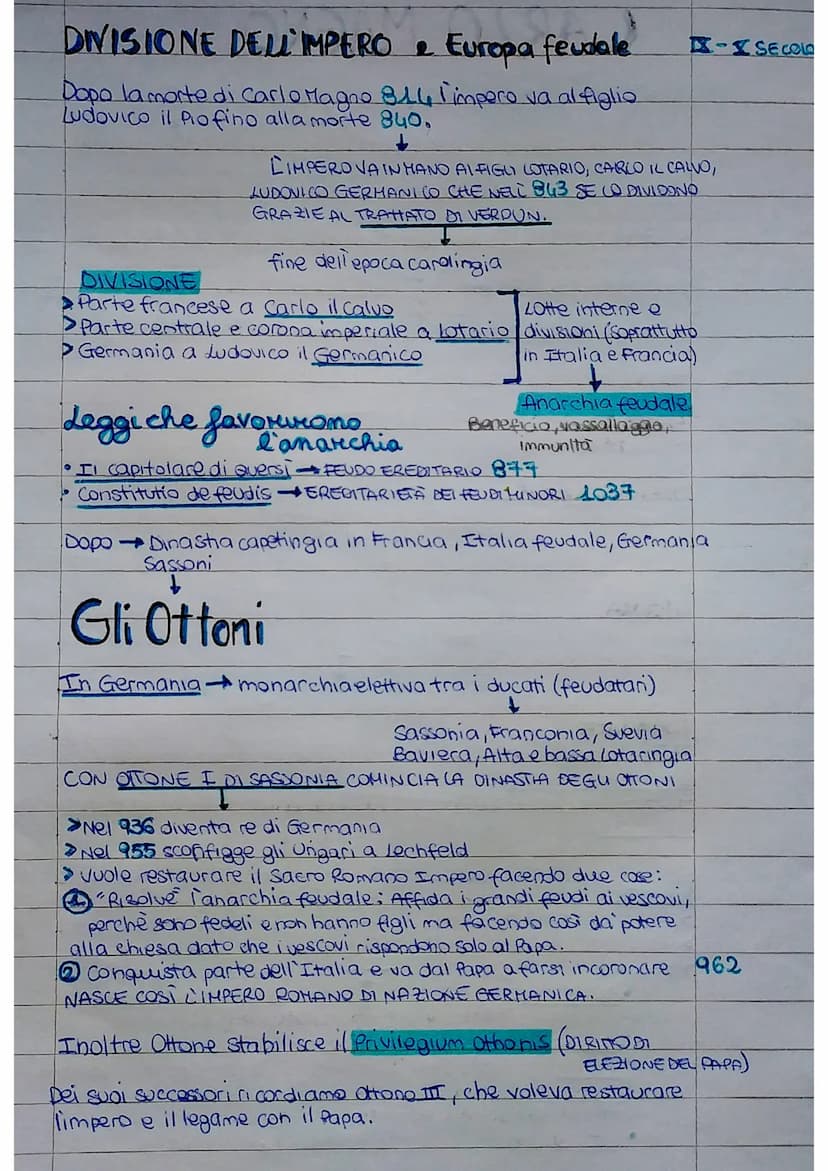 DIVISIONE DELL'IMPERO e Europa feudale IX-X SECOLO
Dopo la morte di Carlo Magno 814 l'impero va al figlio
Ludovico il Pio fino alla morte 840.
L'IMPERO VA IN MANO AI FIGLI LOTARIO, CARLO IL CALVO,
LUDOVICO GERMANICO CHE NELL' 843 SE LO DIVIDONO
GRAZIE AL TRATTATO DI VERDUN.
fine dell'epoca carolingia
DIVISIONE
> Parte francese a Carlo il Calvo
> Parte centrale e corona imperiale a Lotario
> Germania a Ludovico il Germanico
Lotte interne e
divisioni (soprattutto
in Italia e Francia)
Anarchia feudale
Beneficio, vassallaggio,
immunità
Leggi che favorirono
l'anarchia
• Il capitolare di quersi → FEUDO EREDITARIO 877
• Constitutio de feudis → EREDITARIETÀ DEI FEUDI MINORI 1037
Dopo → Dinastia capetingia in Francia, Italia feudale, Germania
Sassoni
Gli Ottoni
In Germania → monarchia elettiva tra i ducati (feudatari)
Sassonia, Franconia, Svevia
Baviera, Alta e bassa Lotaringia
CON OTTONE I DI SASSONIA COMINCIA LA DINASTIA DEGLI OTTONI
> Nel 936 diventa re di Germania
> Nel 955 sconfigge gli Ungari a Lechfeld
> Vuole restaurare il Sacro Romano Impero facendo due cose:
1. "Risolve" l'anarchia feudale: Affida i grandi feudi ai vescovi,
perchè sono fedeli e non hanno figli ma facendo così da' potere
alla chiesa dato che i vescovi rispondono solo al Papa.
2 Conquista parte dell'Italia e va dal Papa a farsi incoronare 962
NASCE COSÌ L'IMPERO ROMANO DI NAZIONE GERMANICA.
Inoltre Ottone stabilisce il Privilegium Othonis (DIRITTO DI
ELEZIONE DEL PAPA)
Dei suoi successori ricordiamo Ottone III, che voleva restaurare
l'impero e il legame con il Papa.